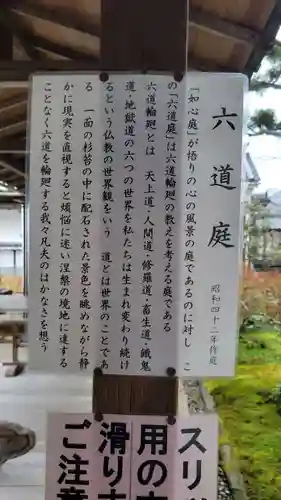 六道庭
昭和四十二年作庭
「如心庭」が悟りの心の風景の庭であるのに対し、こ
の「六道庭」は六道輪廻の教えを考える庭である
六道輪廻とは 天上道・人間道・修羅道・畜生道・餓鬼
道・地獄道の六つの世界を私たちは生まれ変わり続け
るという仏教の世界観をいう 道とは世界のことであ
る 一面の杉苔の中に配石された景色を眺めながら静
かに現実を直視すると煩悩に迷い涅槃の境地に達する
ことなく六道を輪廻する我々凡夫のはかなさを想う
ス
用の
滑り
ご注